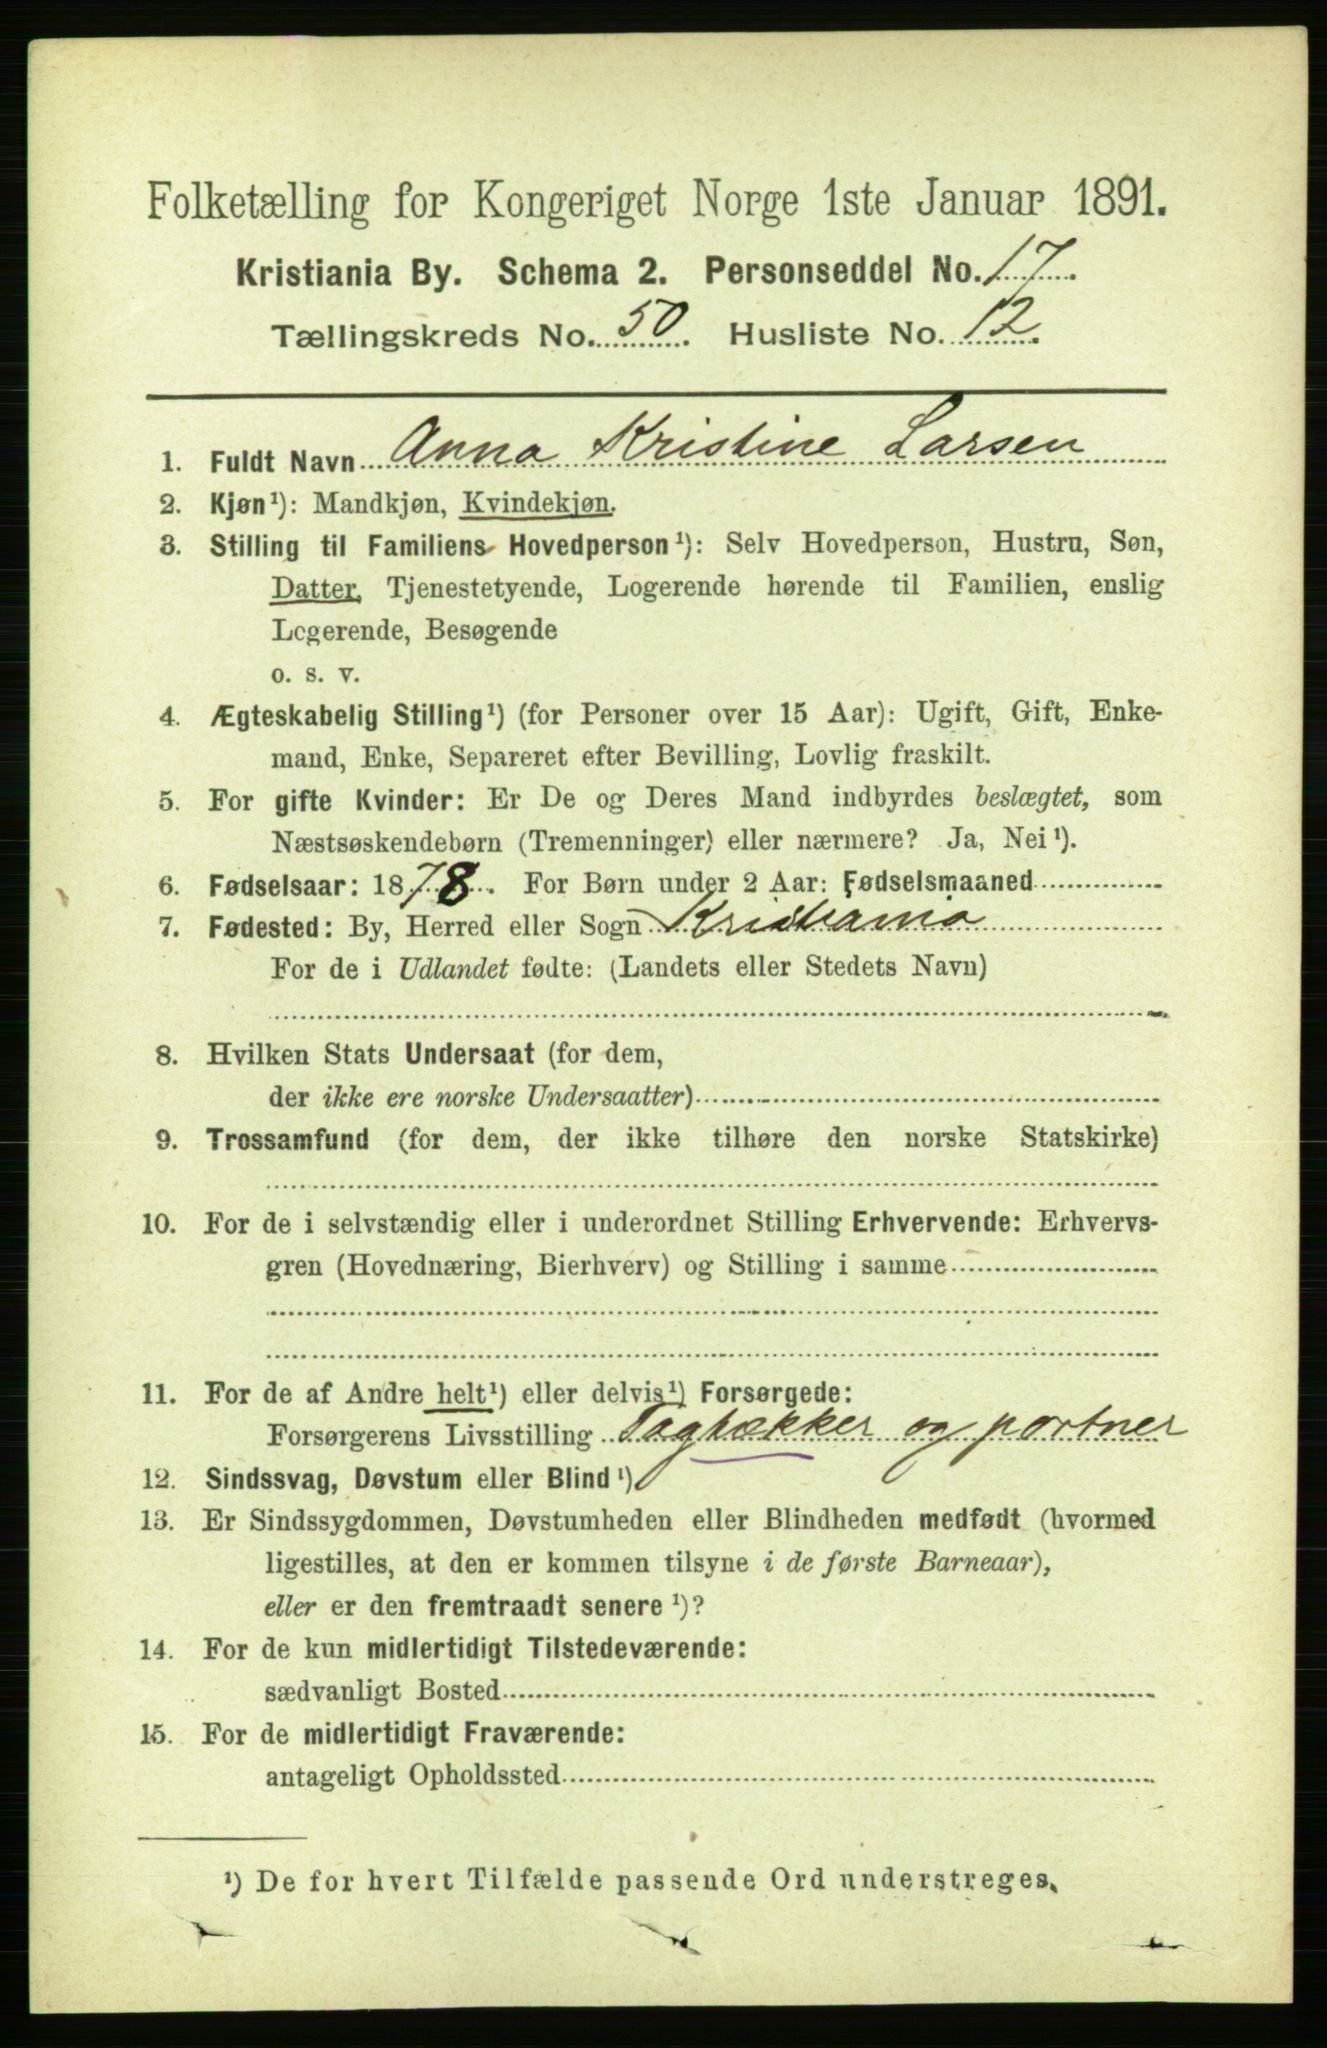 Folketælling for Kongeriget Norge 1ste Januar 1891.
Kristiania By. Schema 2. Personseddel No. 17.
Tællingskreds No. 50. Husliste No. 12.
1. Fuldt Navn Anna Kristine Larsen
2. Kjøn¹): Mandkjøn, Kvindekjøn.
3. Stilling til Familiens Hovedperson¹): Selv Hovedperson, Hustru, Søn,
Datter, Tjenestetyende, Logerende hørende til Familien, enslig
Logerende, Besøgende
o. s. v.
4. Ægteskabelig Stilling¹) (for Personer over 15 Aar): Ugift, Gift, Enke-
mand, Enke, Separeret efter Bevilling, Lovlig fraskilt.
5. For gifte Kvinder: Er De og Deres Mand indbyrdes beslægtet, som
Næstsøskendebørn (Tremenninger) eller nærmere? Ja, Nei¹).
6. Fødselsaar: 1878. For Børn under 2 Aar: Fødselsmaaned
7. Fødested: By, Herred eller Sogn Kristiania
For de i Udlandet fødte: (Landets eller Stedets Navn)
8. Hvilken Stats Undersaat (for dem,
der ikke ere norske Undersaatter)
9. Trossamfund (for dem, der ikke tilhøre den norske Statskirke)
10. For de i selvstændig eller i underordnet Stilling Erhvervende: Erhvervs-
gren (Hovednæring, Bierhverv) og Stilling i samme
11. For de af Andre helt¹) eller delvis¹) Forsørgede:
Forsørgerens Livsstilling Tagtækker og portner
12. Sindssvag, Døvstum eller Blind¹)
13. Er Sindssygdommen, Døvstumheden eller Blindheden medfødt (hvormed
ligestilles, at den er kommen tilsyne i de første Barneaar),
eller er den fremtraadt senere¹)?
14. For de kun midlertidigt Tilstedeværende:
sædvanligt Bosted
15. For de midlertidigt Fraværende:
antageligt Opholdssted
¹) De for hvert Tilfælde passende Ord understreges.